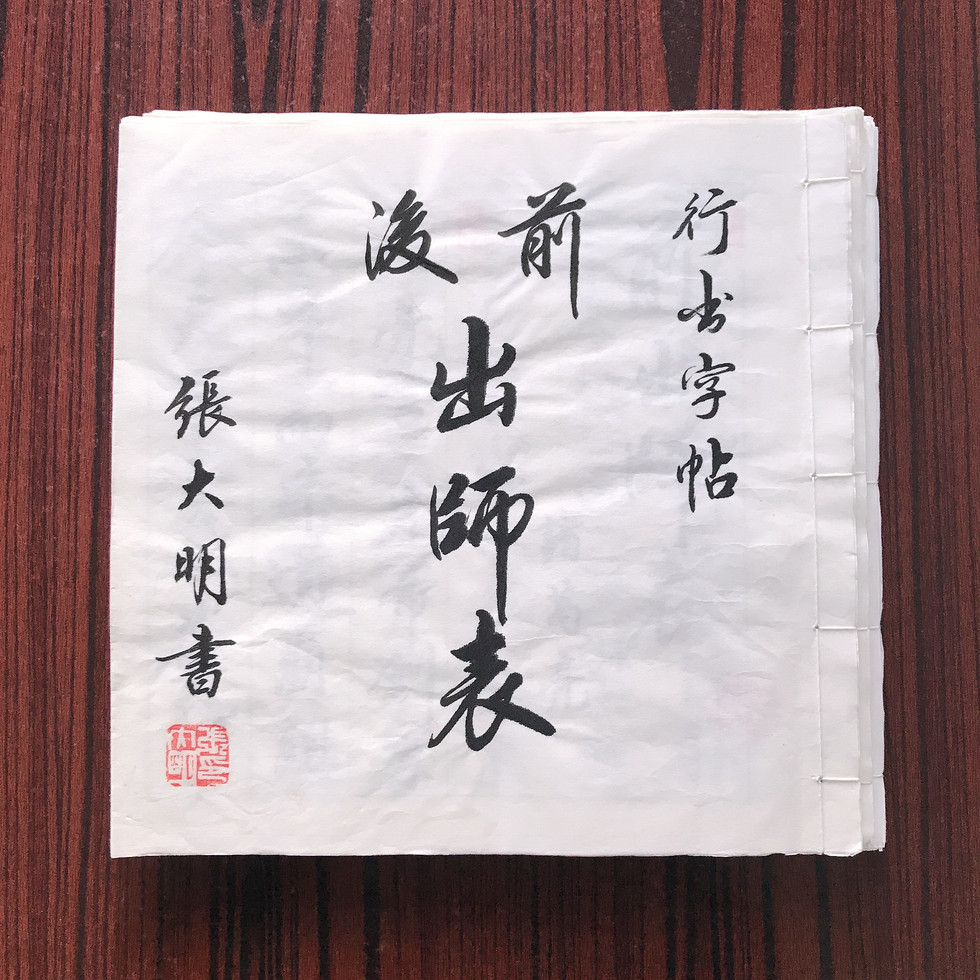 行书字帖
前後
出師表
張大明書
張大明印